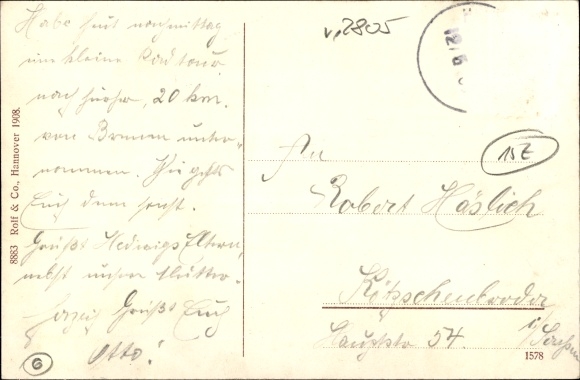 Habe heut nachmittag
eine kleine Radtour
nach hierher, 20 km.
von Bremen unter-
nommen. Wie geht's
Euch denn sonst.
Grüße Hedwigs Eltern
nebst unser Mutter
Grüßt Euch
Otto!
8863 Rolf & Co., Hannover 1908.
v.2805
15E
An
Robert Häslich
Kötzschenbroda
i/Sachsen
Hauptstr 54.
1578
6